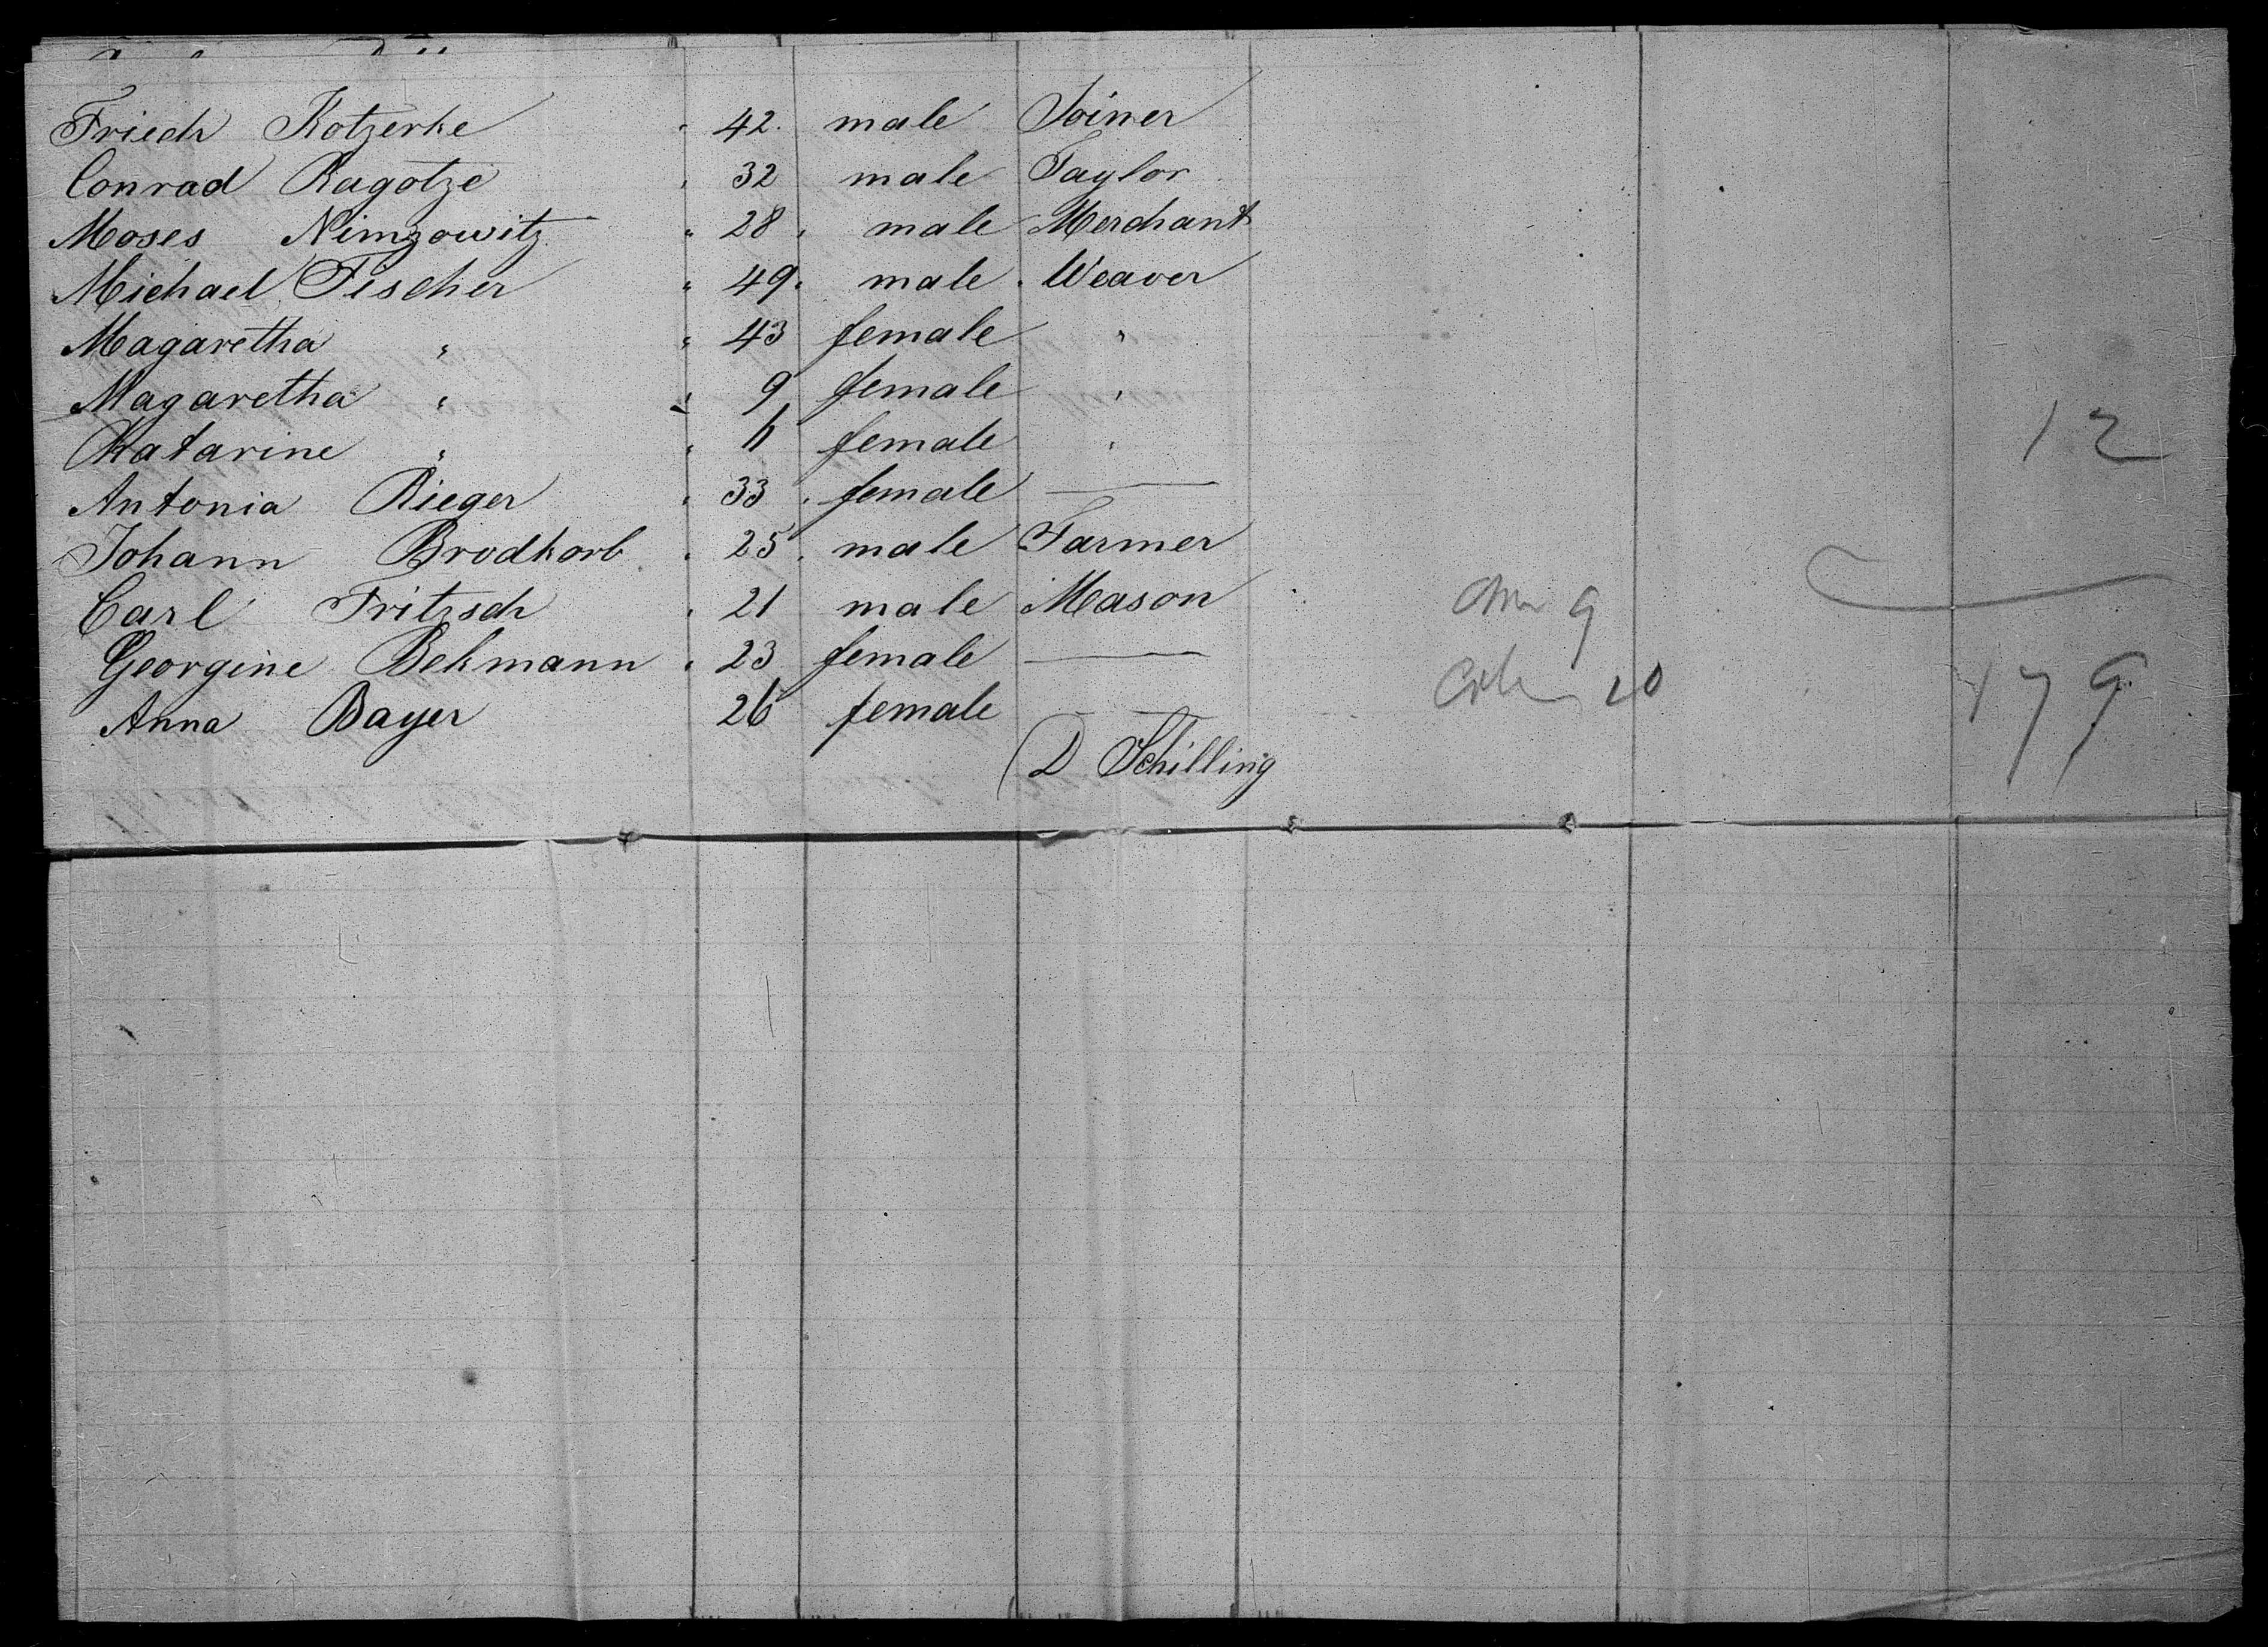 Friedr Kotzerke " 42. male Joiner
Conrad Ragotze " 32 male Taylor
Moses Nimzowitz " 28 " male Merchant
Michael Fischer " 49 " male " Weaver
Magaretha " " 43 female "
Magaretha " " 9 female "
Katarine " " female "
Antonia Rieger " 33 " female —
Johann Brodkorb " 25 " male Farmer
Carl Fritzsch " 21 male Mason
Georgine Bekmann " 23 female —
Anna Bayer 26 female —
D Schilling
12
9
20
179